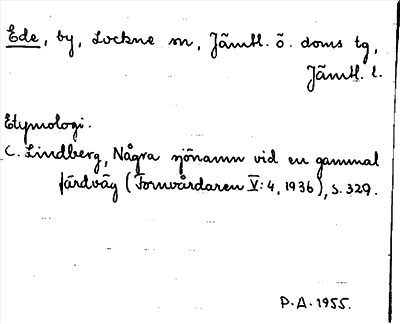 Ede, by, Lockne sn, Jämtl. ö. doms tg,
Jämtl. l.
Etymologi.
C. Lindberg, Några sjönamn vid en gammal
färdväg (Fornvårdaren V:4, 1936), s. 329.
P.A. 1955.